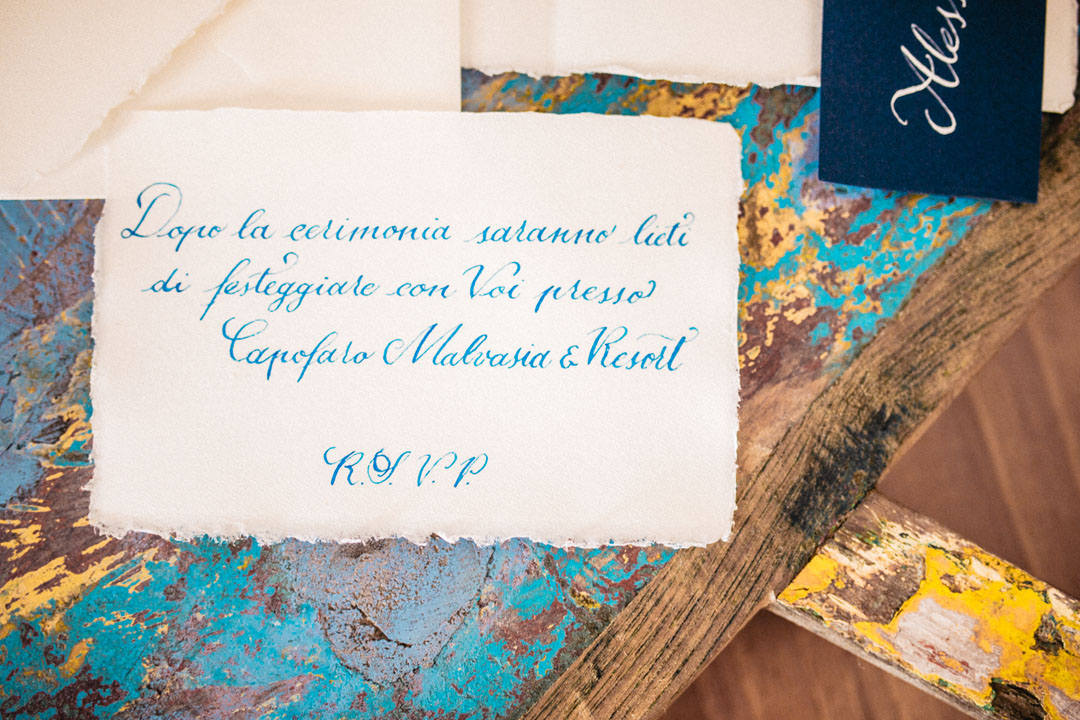 Dopo la cerimonia saranno lieti
di festeggiare con Voi presso
Capofaro Malvasia & Resort
R.S.V.P.
Aless